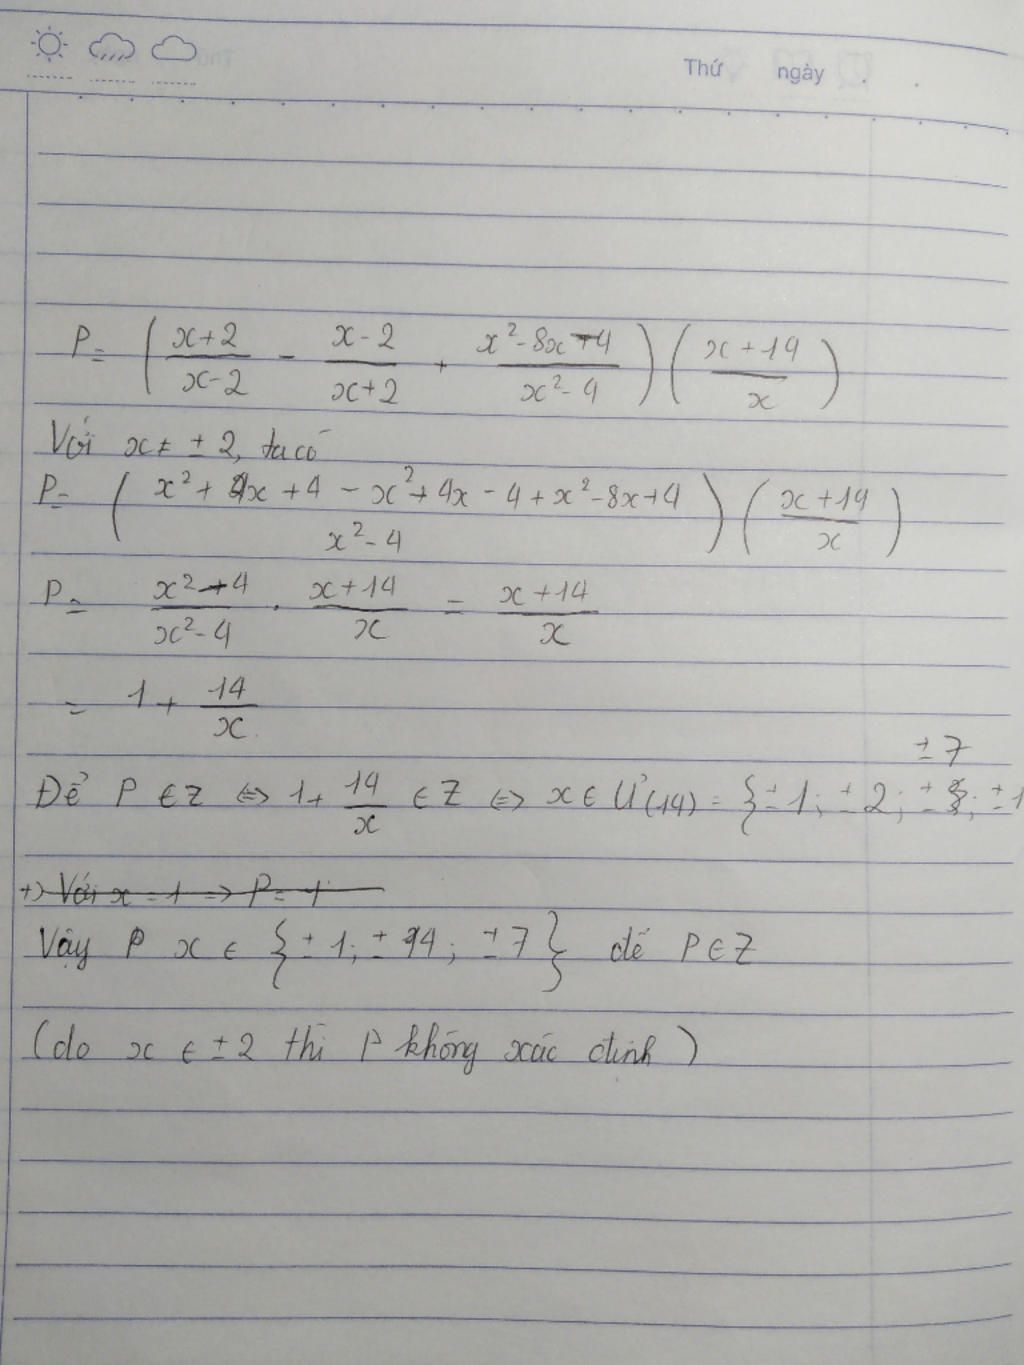 Thứ ngày
P = ( (x+2)/(x-2) - (x-2)/(x+2) + (x²-8x-4)/(x²-4) ) ( (x+14)/x )
Với x ≠ ±2, ta có
P = ( (x² + 4x + 4 - x² + 4x - 4 + x² - 8x + 4)/(x²-4) ) ( (x+14)/x )
P = (x²-4)/(x²-4) . (x+14)/x = (x+14)/x
= 1 + 14/x
± 7
Để P ∈ Z ⇔ 1 + 14/x ∈ Z ⇔ x ∈ Ư(14) = { ±1; ±2; ± ; ±1
+) Với x = 1 ⇒ P = 1
Vậy P x ∈ { ±1; ±14; ±7 } để P ∈ Z
(do x ∈ ±2 thì P không xác định)